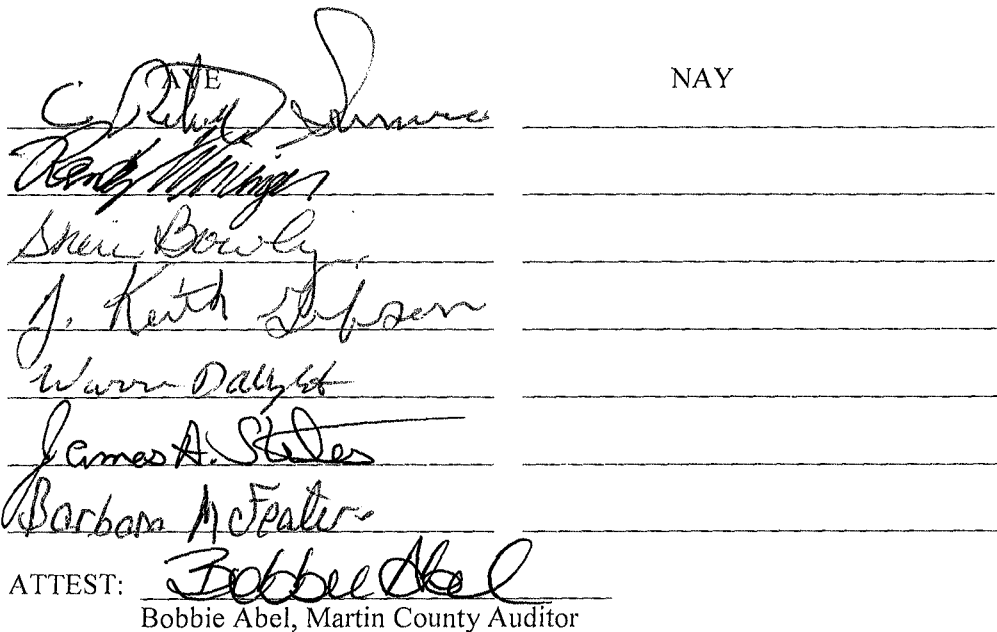 AYE NAY
C.
Randy
Sheri Bowly
J. Keith Gibson
James A. Stiles
Barbara McFeaters
ATTEST: Bobbie Abel
Bobbie Abel, Martin County Auditor